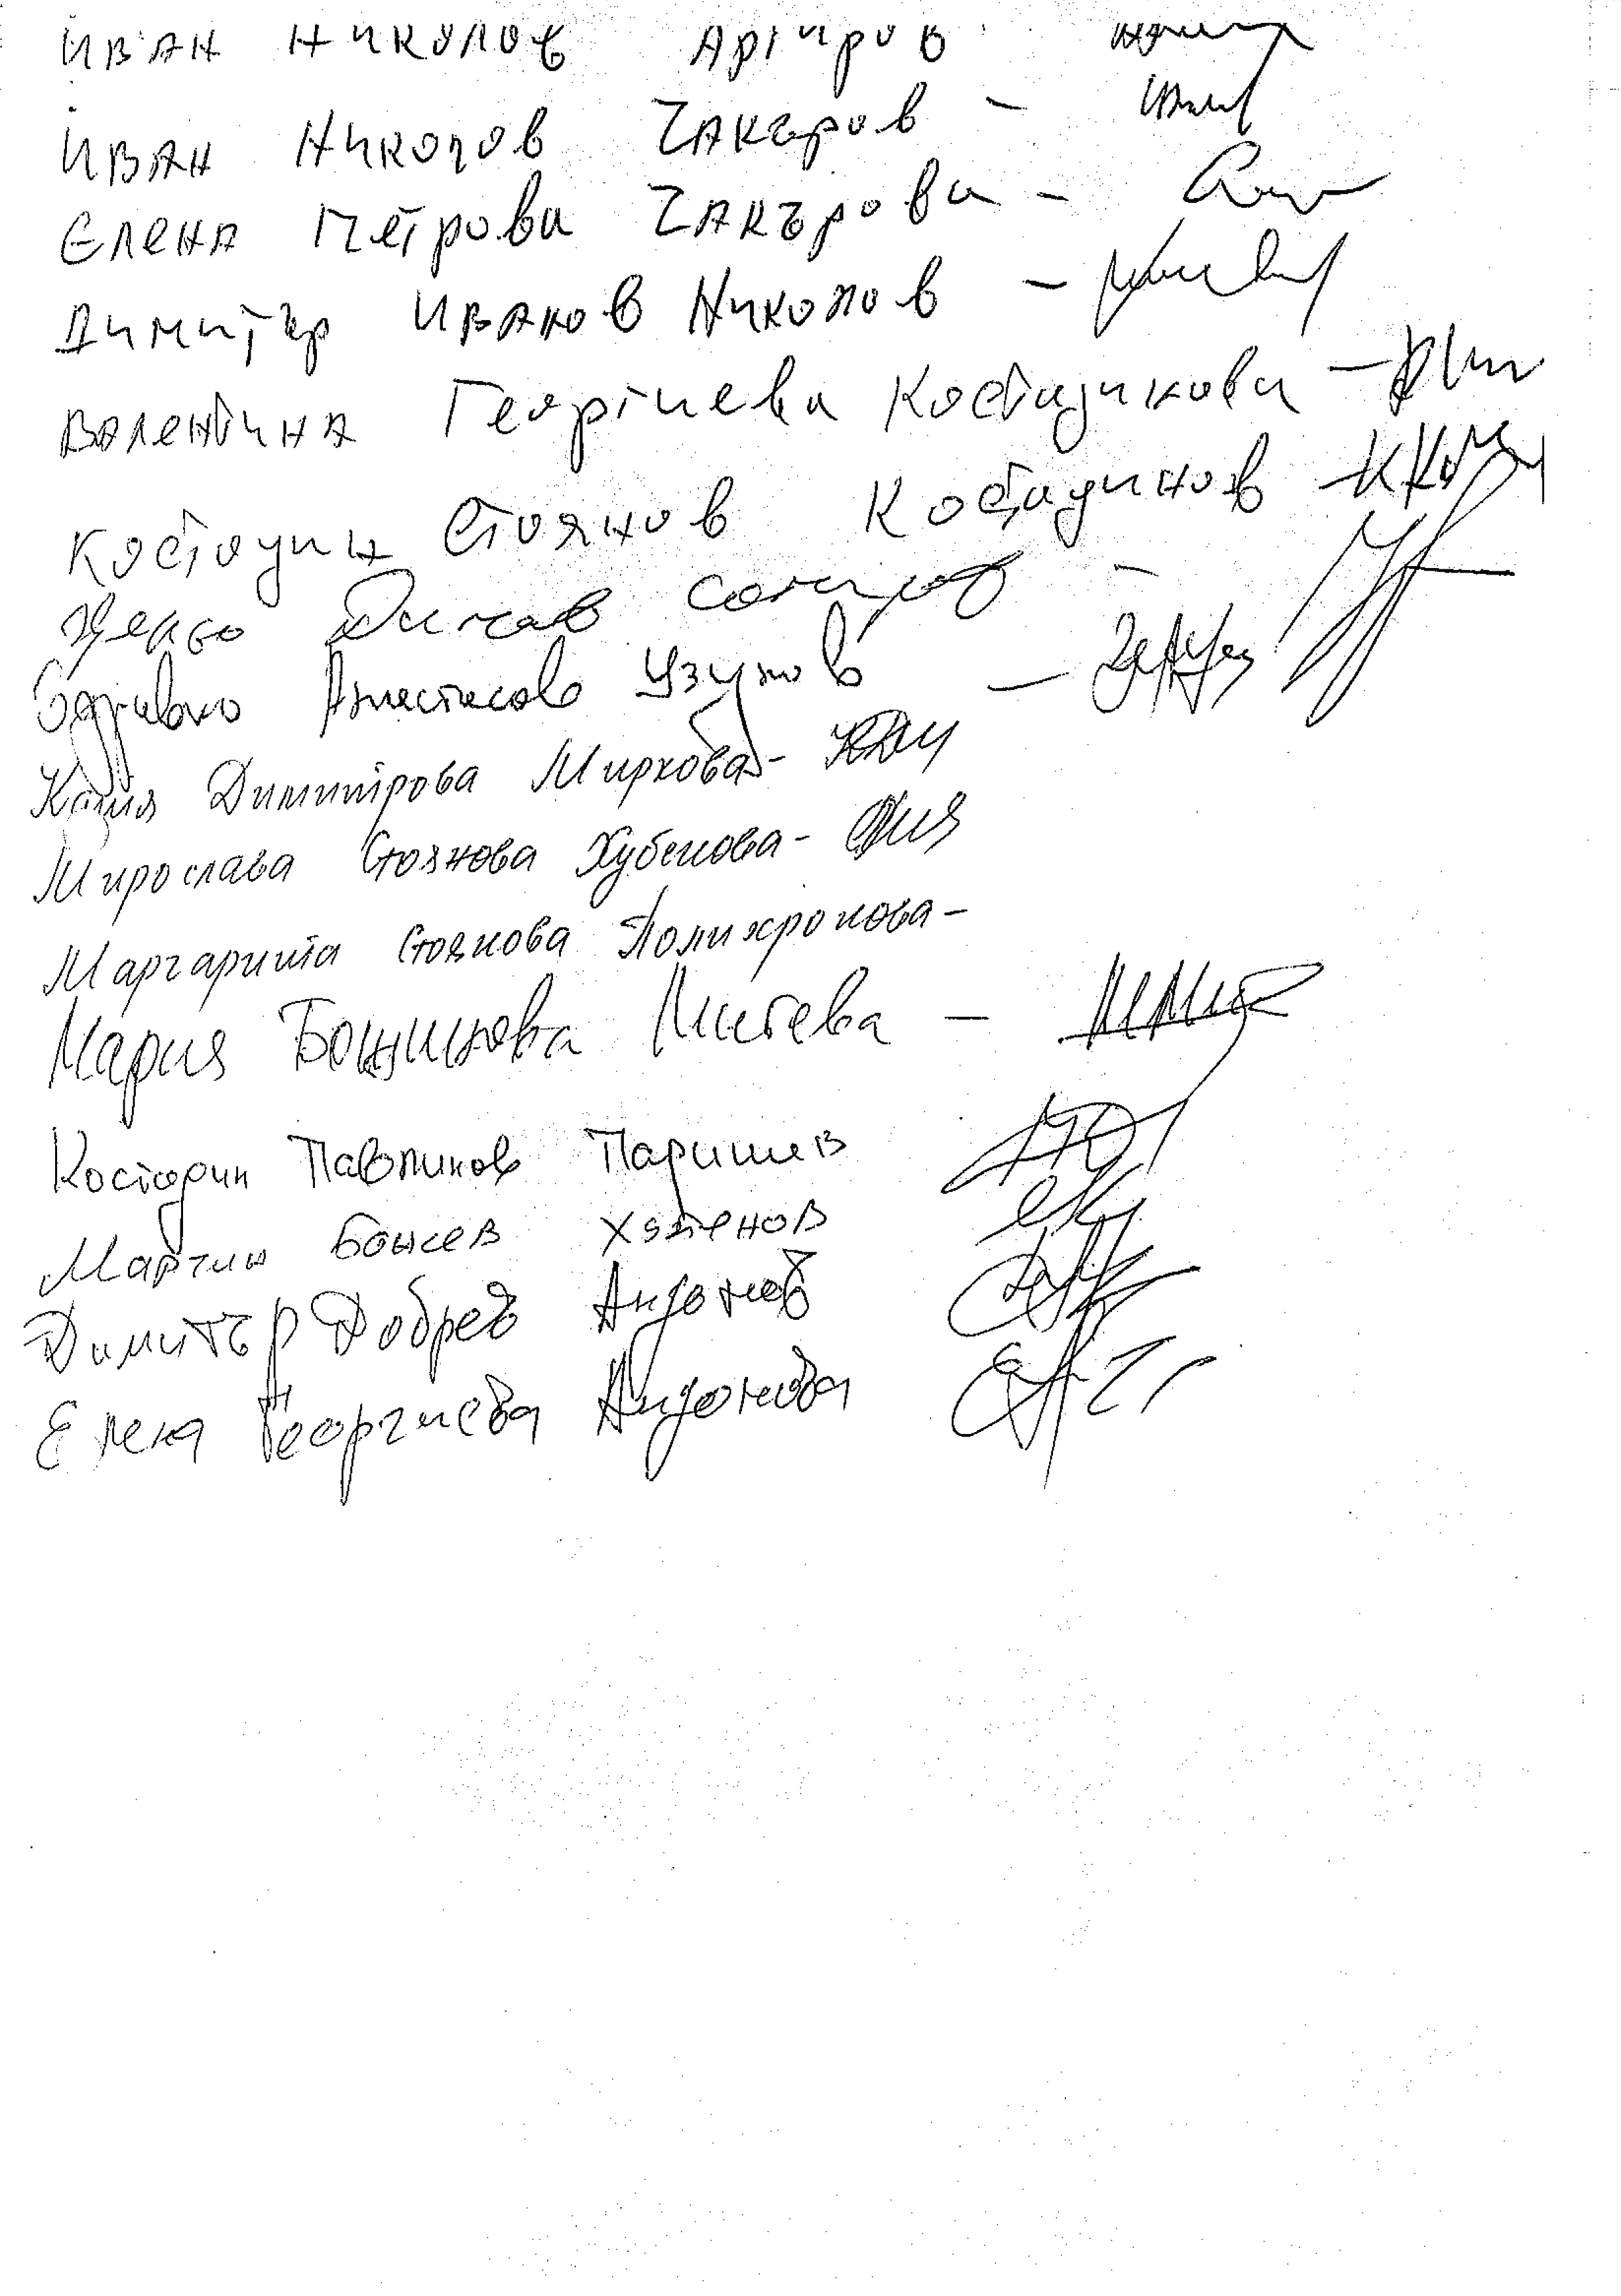 Иван Николов Аргиров
Иван Николов Чакъров -
Елена Петрова Чакърова -
Димитър Иванов Николов -
Валентина Георгиева Костадинова -
Костадин Стоянов Костадинов -
Динов
Здравко Анастасов Узунов -
Катя Димитрова Миркова -
Мирослава Стоянова Хубенова -
Маргарита Стоянова Полихронова -
Мария Божинова Митева -
Костадин Павликов Паришев
Мартин Божев
Димитър Добрев Андонов
Елена Георгиева Андонова